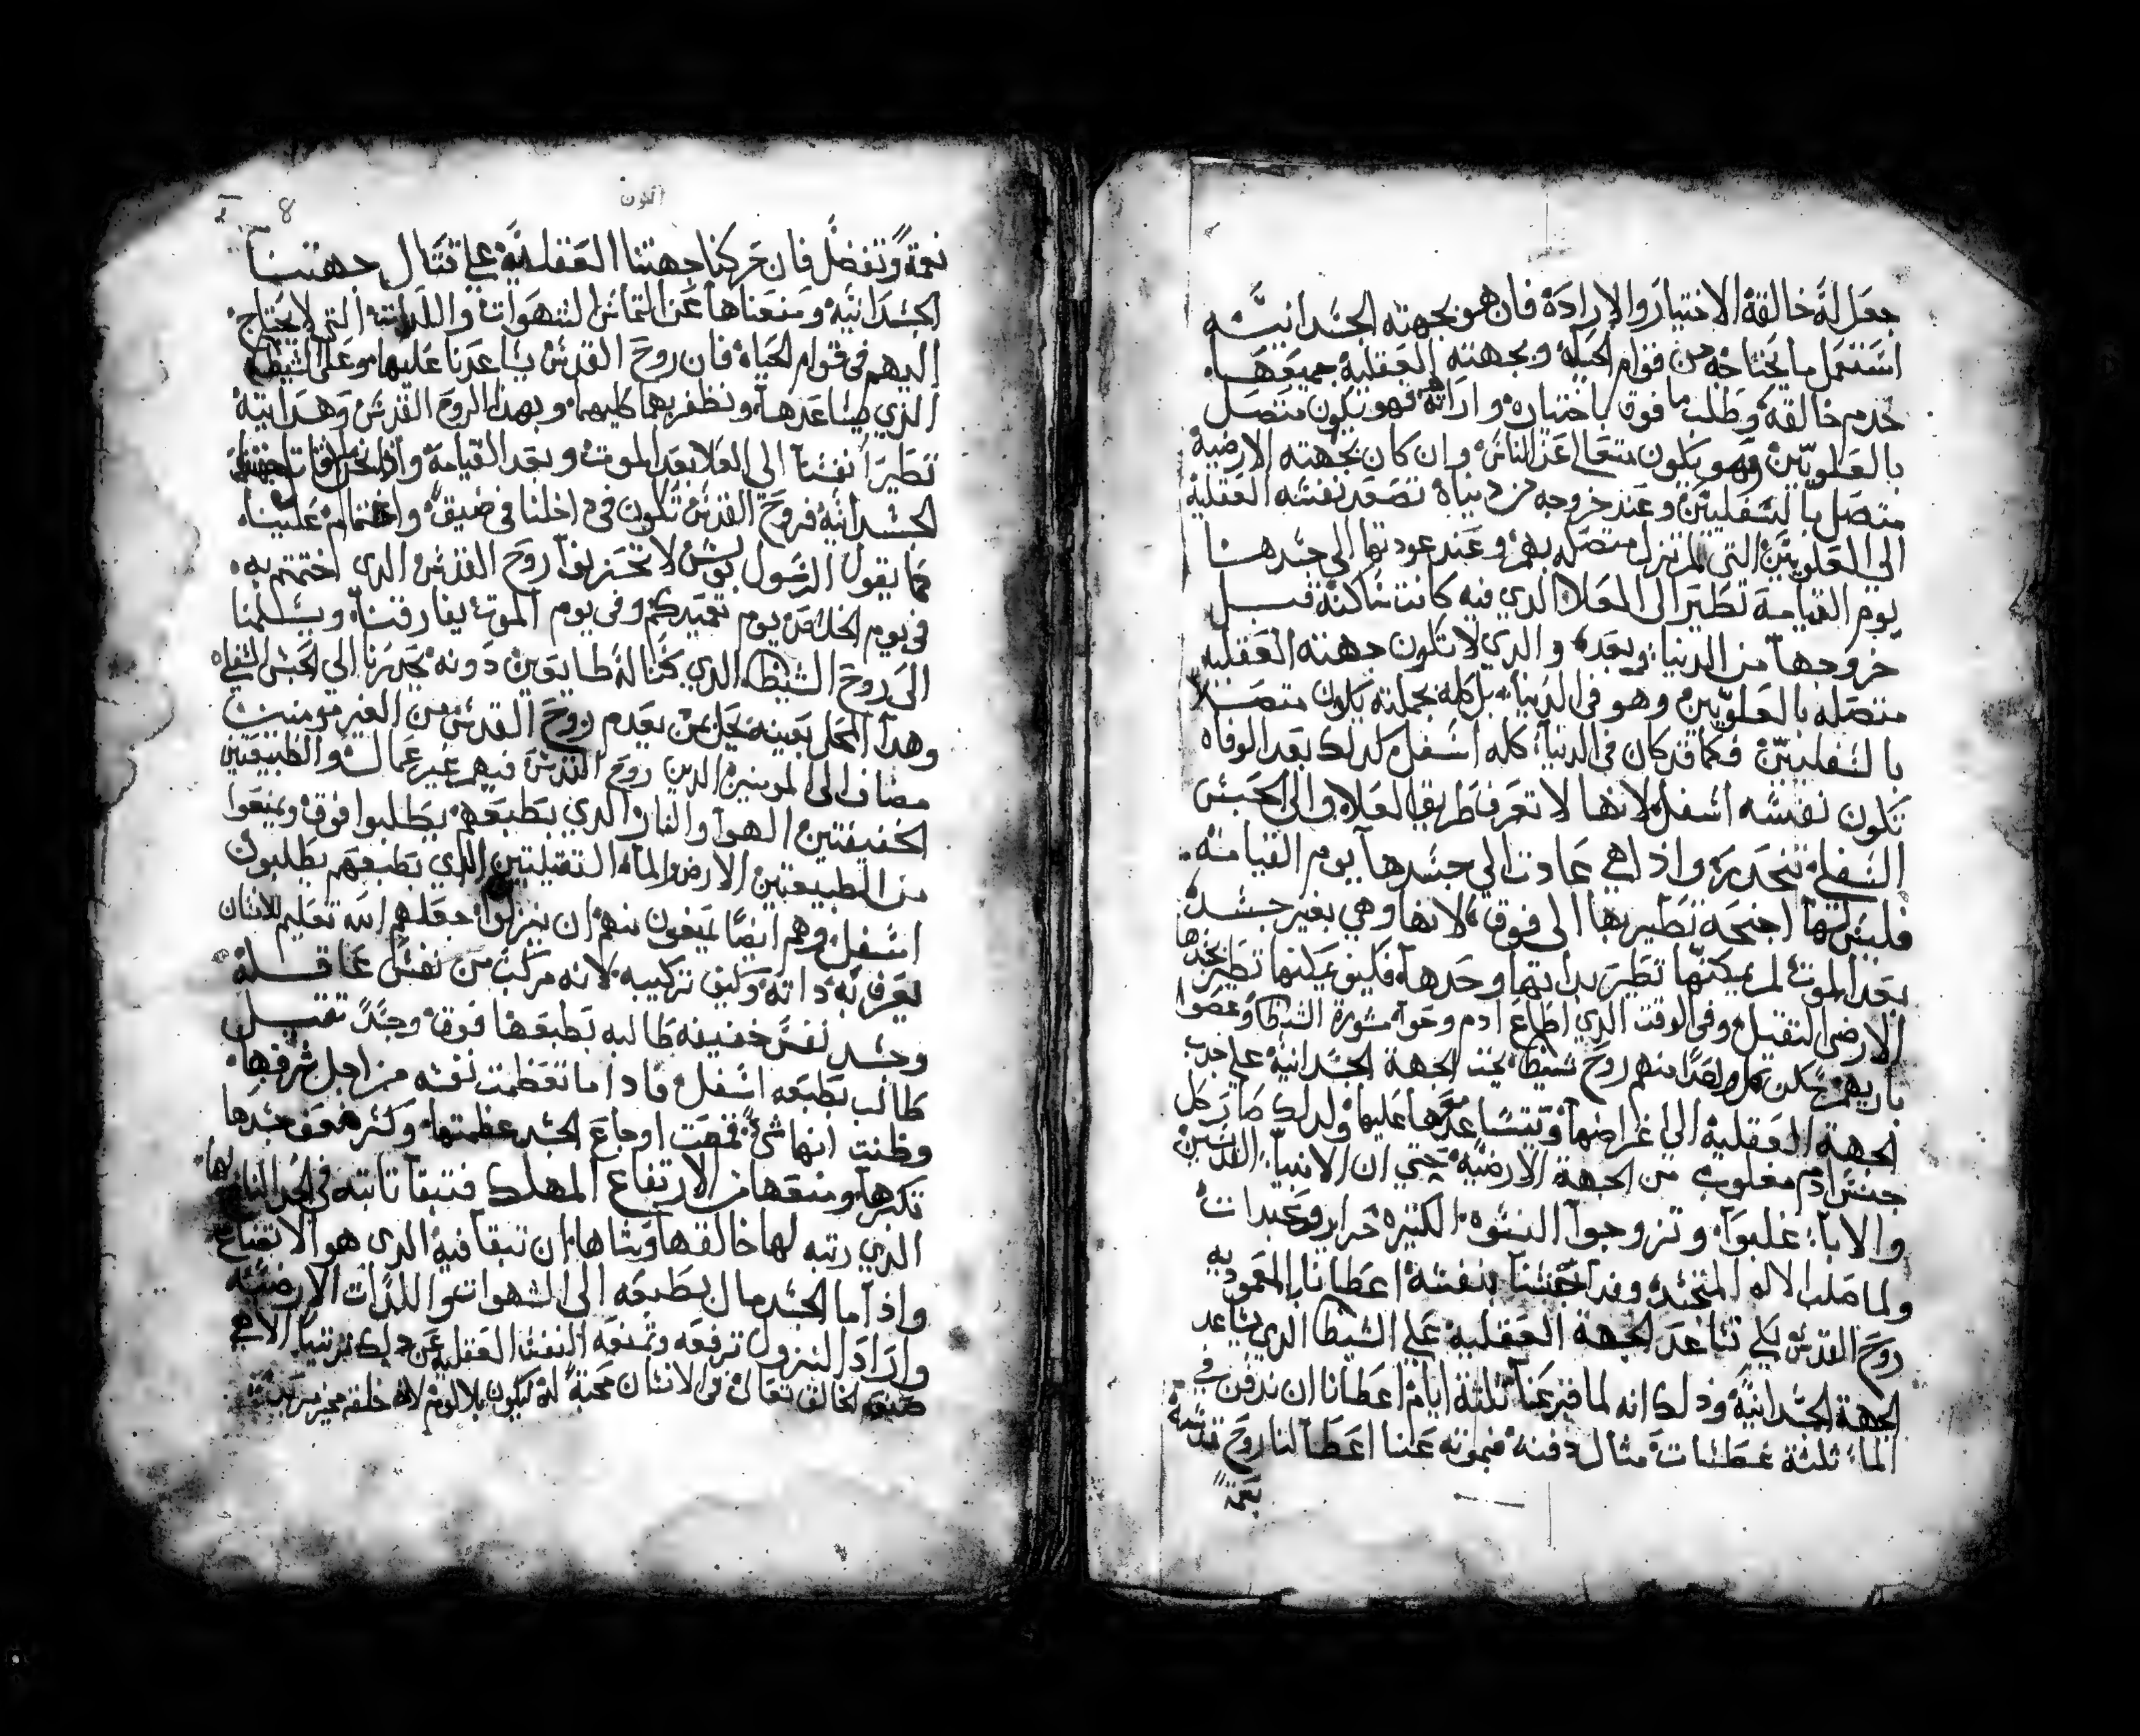 جعل له خالقه الاختيار والارادة فان هو بجهته الجسدانيه
استعمل ما يحتاجه من قوام الحياه وبجهته العقليه جميعها
خدم خالقه وطلب ما فوق باختياره وارادته فهو يكون متصل
بالعلويين وهو يكون متعالي عن الناس وان كان بجهته الارضية
متصل بالسفليين وعند خروجه من دنياه تصعد نفسه العقلية
الى العلويين التي لم تزل متصله بهم وعند عودتها الى جسدها
يوم القيامة تطير الى العلا الدي فيه كانت ساكنة قبل
خروجها من الدنيا وبعده والدي لا تكون جهته العقليه
متصله بالعلويين وهو في الدنيا بل كله بجملته يكون متصلا
بالسفليين فكما قد كان في الدنيا كله اسفل كدلك بعد الوفاه
تكون نفسه اسفل لانها لا تعرف طريق العلا والى الحبس
السفلي تنحدر واذا هي عادت الي جسدها يوم القيامة
فليس لها اجنحة تطير بها الى فوق لانها وهي بغير جسد
بعد الموت لم يمكنها تطير بداتها وحدها فكيف يمكنها تطير بجسدها
الارضي الثقيل وفي الوقت الدي اطاع ادم وحوا مشورة الشيطان وعصوا
باريهم سكن كل واحدا منهم روح شيطان تحت الجهة الجسدانية علي جدب
الجهة العقلية الى اغراضها وتساعدها عليها ولدلك صار كل
جنس ادم مغلوب من الجهة الارضية حتي ان الانبيا القديسين
والابا غلبوا وتزوجوا النسوة الكثيرة حراير وعبدات
ولما صلب الاله المتجسد وفدا جنسنا بنفسه اعطانا بالمعموديه
روح القدس لكي تساعد الجهة العقلية علي الشيطان الدي يساعد
الجهة الجسدانية ودلك انه لما قبر عنا ثلثة ايام اعطانا ان ندفن في
الما ثلثة غطسات مثال دفنه فبموته عنا اعطا لنا روح قدسه
نعمة
نعمة وتفضل فان حركنا جهتنا العقلية علي قتال جهتنا
الجسدانيه ومنعناها عن التماس الشهوات واللدات التي لا يحتاج
اليهم في قوام الحياة فان روح القدس يساعدنا عليها وعلى الشيطان
الدي يساعدها ونظفر بهما كليهما وبهدا الروح القدس وهدايته
تطير انفسنا الى العلا بعد الموت وبعد القيامة واذا نحن
الجسدانية فروح القدس تكون في داخلنا في ضيقة واغتمام علينا
كما يقول الرسول بولس لا تحزنوا روح القدس الدي اختتمتم به
في يوم الخلاص يوم تعميدكم وفي يوم الموت يفارقنا ويسلمنا
الى روح الشيطان الدي كنا له طايعين دونه يحدرنا الي الحبس السفلي
وهدا المحل بعينه يحل بمن يعدم روح القدس من الغير مومنين
مضاف الى المومنين الدين روح القدس فيهم غير عمال والطبيعتين
الخفيفتين الهوا والنار الدي بطبعهم يطلبوا فوق ويمنعوا
من الطبيعتين الارض والماء الثقيلتين الدي بطبعهم يطلبون
اسفل وهم ايضا يمنعون منهم ان ينزلوا جعلهم الله تعليم للانسان
يعرف به داته وكيف تركيبه لانه مركب من نفس عاقلة
وجسد نفس خفيفه طالبه بطبعها فوق وجسد ثقيل
طالب بطبعه اسفل فاداما تعظمت نفسه من اجل شرفها
وظنت انها شي قمعت اوجاع الجسد عظمتها وكسر ضعف جسدها
تكبرها ومنعها من الارتفاع المهلك فتبقا ثابته في الحد النافع لها
الدي رتبه لها خالقها وشاها ان تبقا فيه الدي هو الاتضاع
واذا ما الجسد مال بطبعه الى الشهوات واللدات الارضيه
واراد النزول ترفعه وتمنعه النفس العقليه عن دلك ترتيبا الاهي
صنعه الخالق تعالى في الانسان محبة له ليكون بلا لوم لانه خلقه مخير